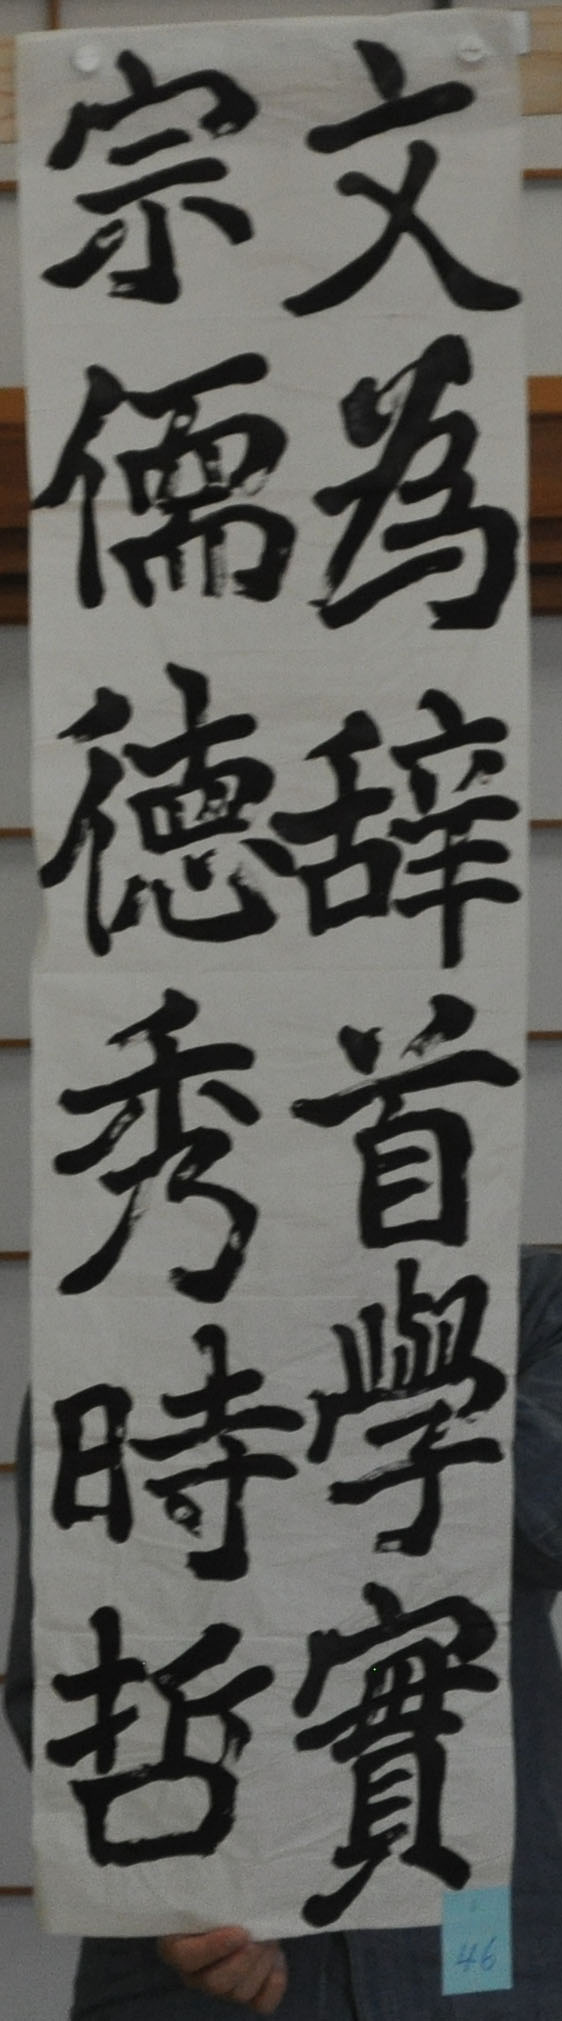 文為辞首學實
宗儒德秀時哲
46